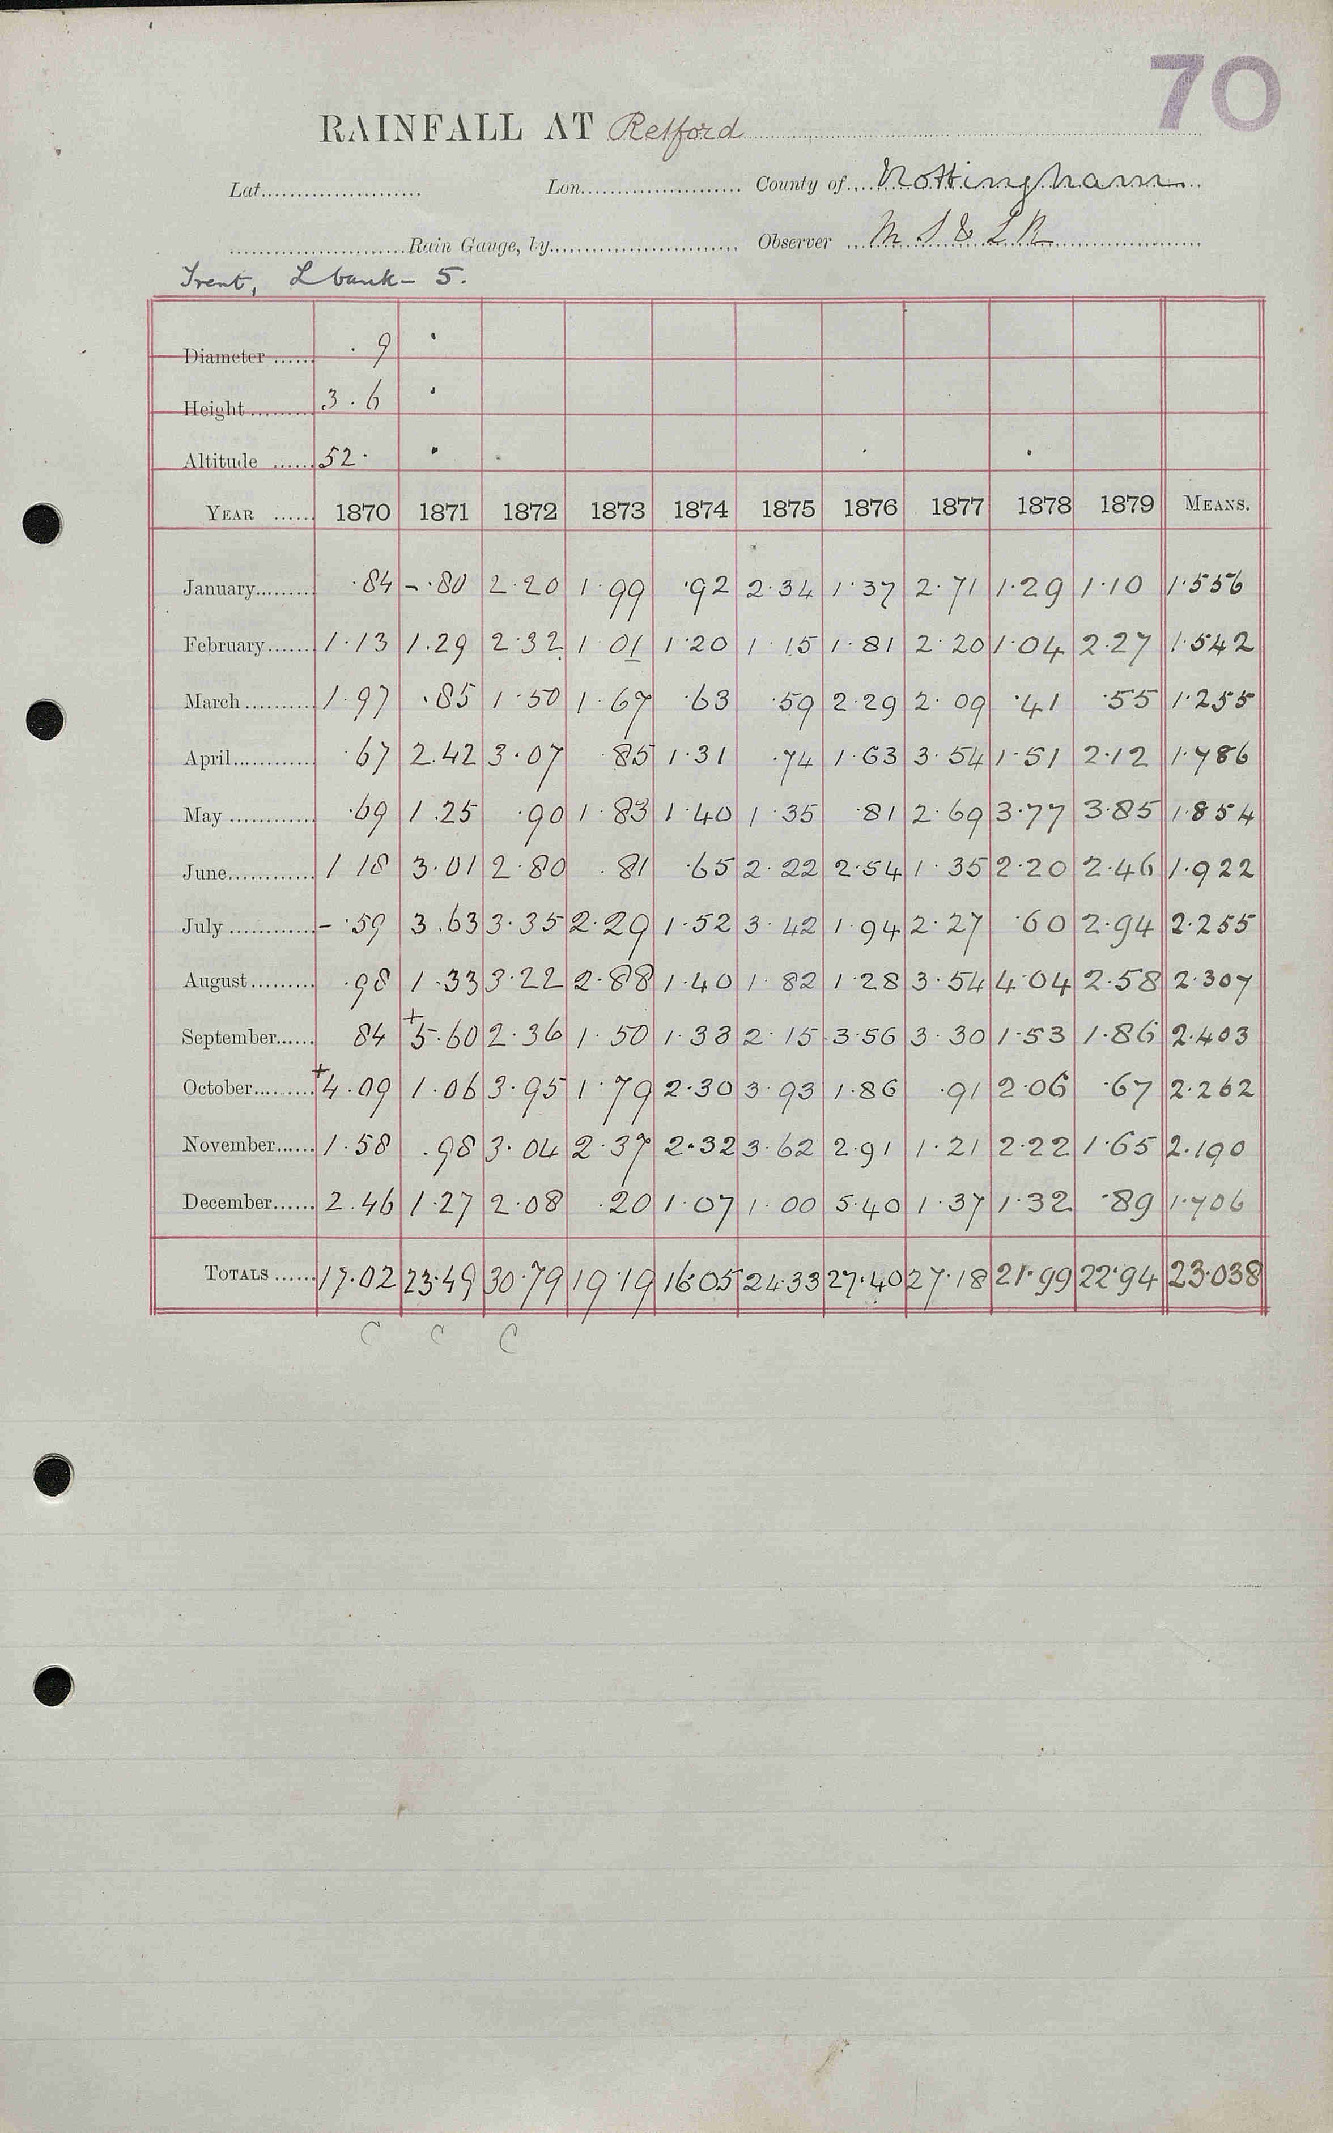 70
RAINFALL AT Retford
Lat. Lon. County of Nottingham
Rain Gauge, by Observer M S & L R
Trent, L bank - 5.
Diameter 9
Height 3.6
Altitude 52.
YEAR 1870 1871 1872 1873 1874 1875 1876 1877 1878 1879 MEANS.
January ·84 - ·80 2·20 1·99 ·92 2·34 1·37 2·71 1·29 1·10 1·556
February 1·13 1·29 2·32 1·01 1·20 1·15 1·81 2·20 1·04 2·27 1·542
March 1·97 ·85 1·50 1·67 ·63 ·59 2·29 2·09 ·41 ·55 1·255
April ·67 2·42 3·07 ·85 1·31 ·74 1·63 3·54 1·51 2·12 1·786
May ·69 1·25 ·90 1·83 1·40 1·35 ·81 2·69 3·77 3·85 1·854
June 1 18 3·01 2·80 ·81 ·65 2·22 2·54 1·35 2·20 2·46 1·922
July - ·59 3·63 3·35 2·29 1·52 3·42 1·94 2·27 ·60 2·94 2·255
August ·98 1·33 3·22 2·88 1·40 1·82 1·28 3·54 4·04 2·58 2·307
September 84 +5·60 2·36 1·50 1·33 2·15 3·56 3·30 1·53 1·86 2·403
October +4·09 1·06 3·95 1·79 2·30 3·93 1·86 ·91 2·06 ·67 2·262
November 1·58 ·98 3·04 2·37 2·32 3·62 2·91 1·21 2·22 1·65 2·190
December 2·46 1·27 2·08 ·20 1·07 1·00 5·40 1·37 1·32 ·89 1·706
TOTALS 17·02 23·49 30·79 19·19 16·05 24·33 27·40 27·18 21·99 22·94 23·038
C C C